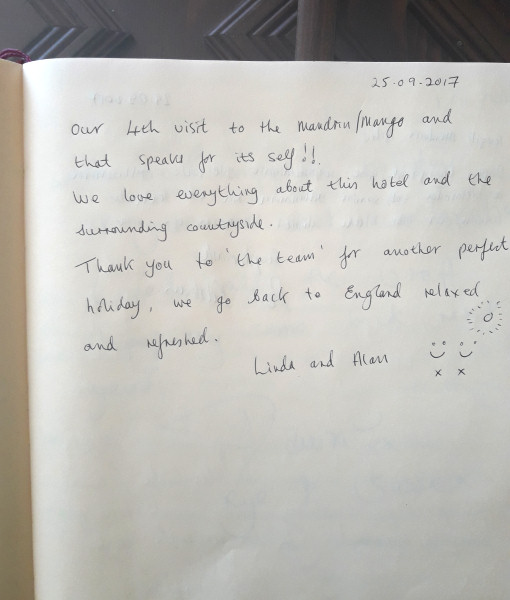 25-09-2017
Our 4th visit to the Mandrin/Mango and
that speaks for its self!!.
We love everything about this hotel and the
surrounding countryside.
Thank you to 'the team' for another perfect
holiday, we go back to England relaxed
and refreshed.
Linda and Alan
x x